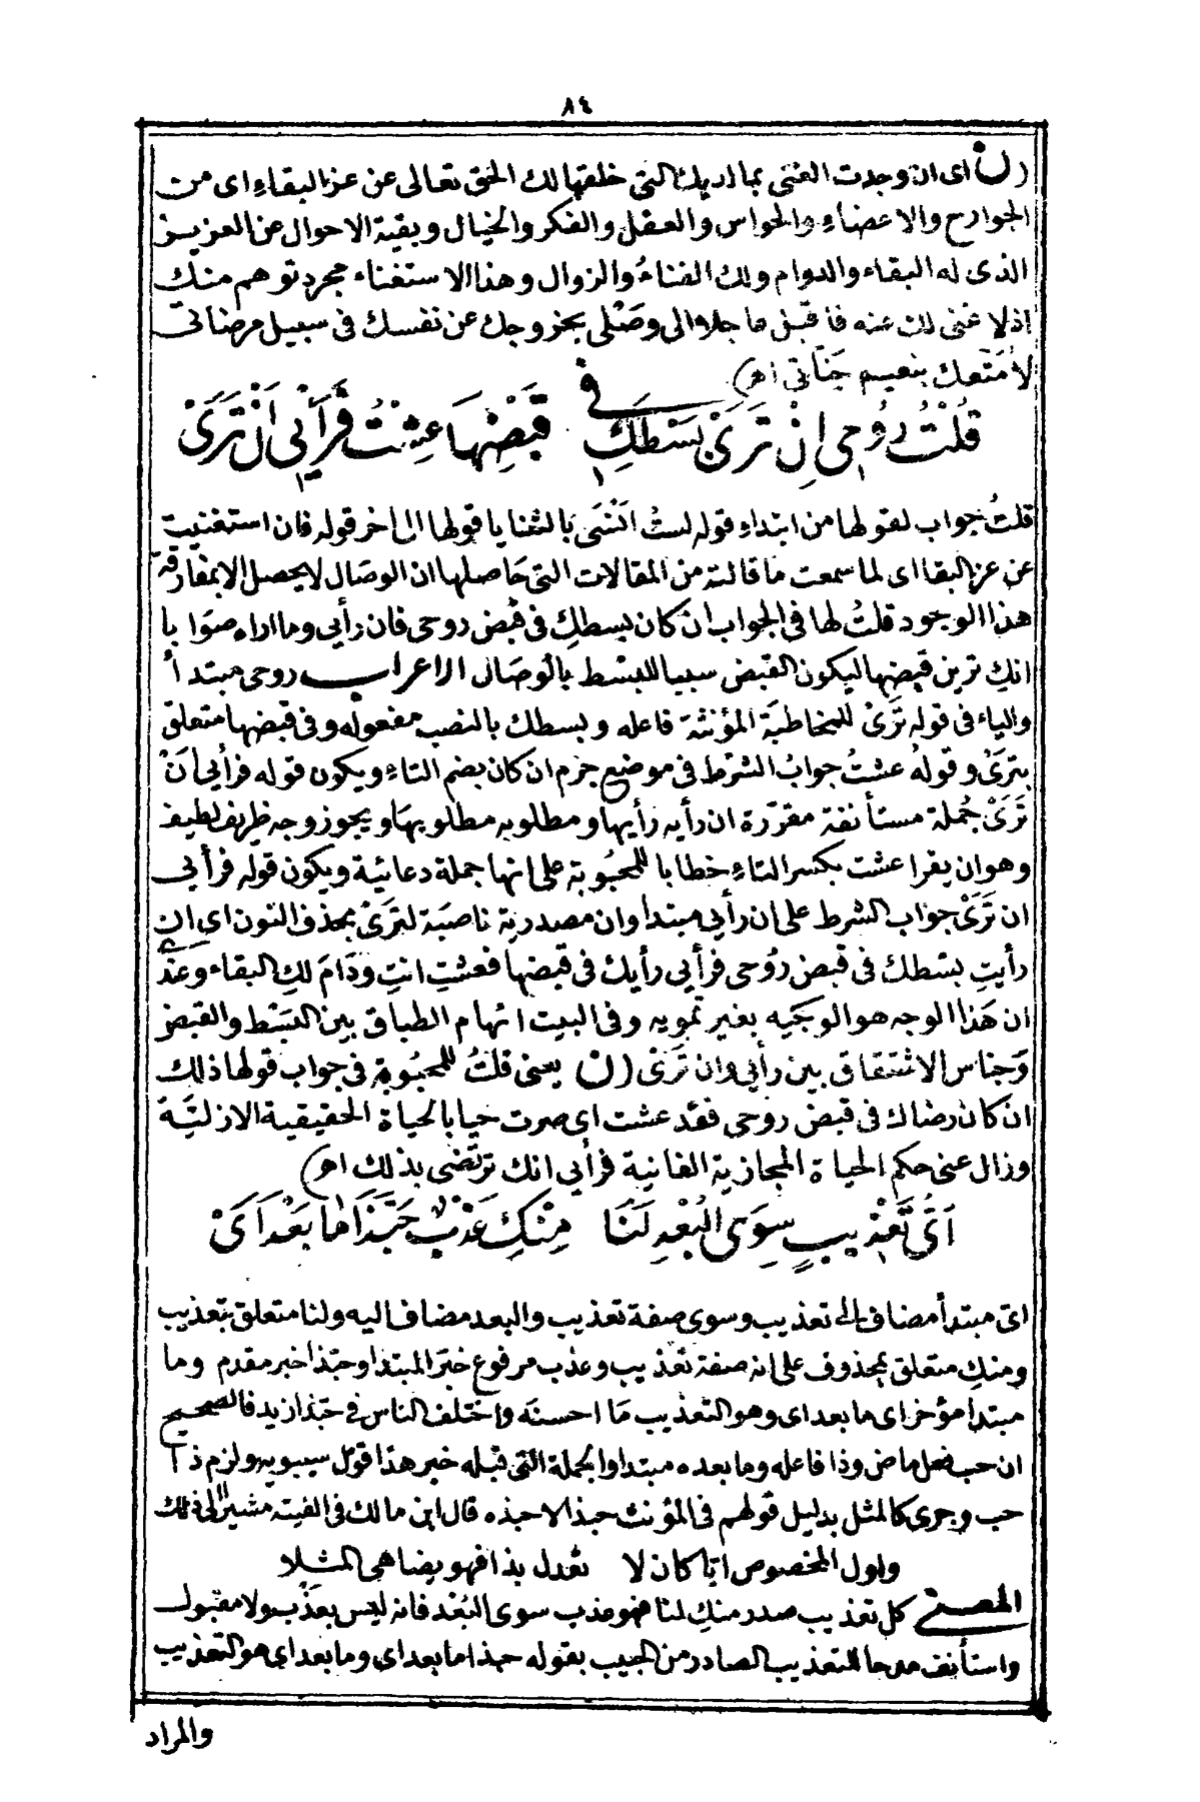 ٨٤
(ن) اى ان وجدت الغنى بما لديك التى خلقها لك الحق تعالى عن عز البقاء اى من
الجوارح والاعضاء والحواس والعقل والفكر والخيال وبقية الاحوال عن العزيز
الذى له البقاء والدوام ولك الفناءُ والزوال وهذا الاستغناء مجرد توهم منك
اذ لا غنى لك عنه فاقبل ما جلاه الى وصْلى بخروجك عن نفسك فى سبيل مرضاتى
لأمتّعك بنعيم جَنّاتى اهـ)
قُلْتُ رُوْحِى اِنْ تَرَىْ بَسْطَكِ فى قَبْضِهَا عِشْتُ فَرَأْيِى اَنْ تَرَىْ
قلتُ جواب لقولها من ابتداءِ قوله لستُ اَنْسَى بالثنايا قولها الى آخر قوله فان استغنيت
عن عز البقا اى لما سمعت ما قالته من المقالات التى حاصلها ان الوصال لا يحصل الا بمفارقة
هذا الوجود قلتُ لها فى الجواب ان كان بسطكِ فى قبض روحى فان رأيى وما اراه صوابا
انكِ ترين قبضها ليكون القبض سببيا للبسْط بالوصال الاعراب روحى مبتدأ
والياء فى قوله تَرَىْ للمخاطبة المؤنثة فاعله وبسطك بالنصب مفعوله وفى قبضها متعلق
بترَىْ وقولهُ عشتُ جوابُ الشرط فى موضع جزم ان كان بضم التاءِ ويكون قوله فرأيى اَنْ
تَرَىْ جُملة مستأنفة مقرّرة ان رأيه رأيها ومطلوبه مطلوبها ويجوز وجه ظريف لطيف
وهو ان يقرا عشت بكسر التاءِ خطابا للمحبوبة على انها جملة دعائية ويكون قوله فرأيى
ان تَرَىْ جواب الشرط على ان رأيى مبتدا وان مصدرية ناصبَة لترَىْ بحذف النون اى ان
رأيتِ بسْطك فى قبض رُوحى فرأيى رأيك فى قبضها فعشتِ انتِ ودَامَ لكِ البقاء وعندى
ان هَذا الوجه هو الوجَيه بغير تمويه وفى البيت ايهام الطباق بين البسْط والقبض
وَجناس الاشتقاق بين رأيى وان تَرَىْ (ن) يعنى قلتُ للمحبُوبة فى جواب قولها ذلك
ان كان رضاك فى قبض روحى فقد عشت اى صرت حيا بالحياة الحقيقية الازليّة
وزال عنى حكم الحياة المجازية الفانية فرأيى انك ترتضى بذلك اهـ)
اَىُّ تَعْذِيبٍ سِوَى البُعْدِ لَنَا مِنْكِ عَذْبٌ حَبَّذَا مَا بَعْدَ اَىْ
اىّ مبتدأ مضاف الى تعذيب وسوى صفة تعذيب والبعد مضاف اليه ولنا متعلق بتعذيب
ومنكِ متعلق بمحذوف على انه صفة تعذيب وعذب مرفوع خبر المبتدا وحبّذا خبر مقدم وما
مبتدا مؤخر اى ما بعد اى وهو التعذيب مَا احسنَه واختلف الناس فى حبّذا زيد فالصحيح
ان حب فعل ماض وذا فاعله وما بعده مبتدا والجملة التى قبله خبر هذا قول سيبويه ولزم ذا
حب وجرى كالمثل بدليل قولهم فى المؤنث حبذا لا حبذه قال ابن مالك فى الفيته مشيرًا الى ذلك
واول المخصوص ايّا كان لا تعدل بذا فهو يضاهى المثلا
المعنى كل تعذيب صدر منكِ لنا فهو عذب سوى البُعْد فانه ليس بعَذْب ولا مقبول
واستأنف مدحا للتعذيب الصادر من الحبيب بقوله حبذا ما بعد اى وما بعد اى هو التعذيب
والمراد